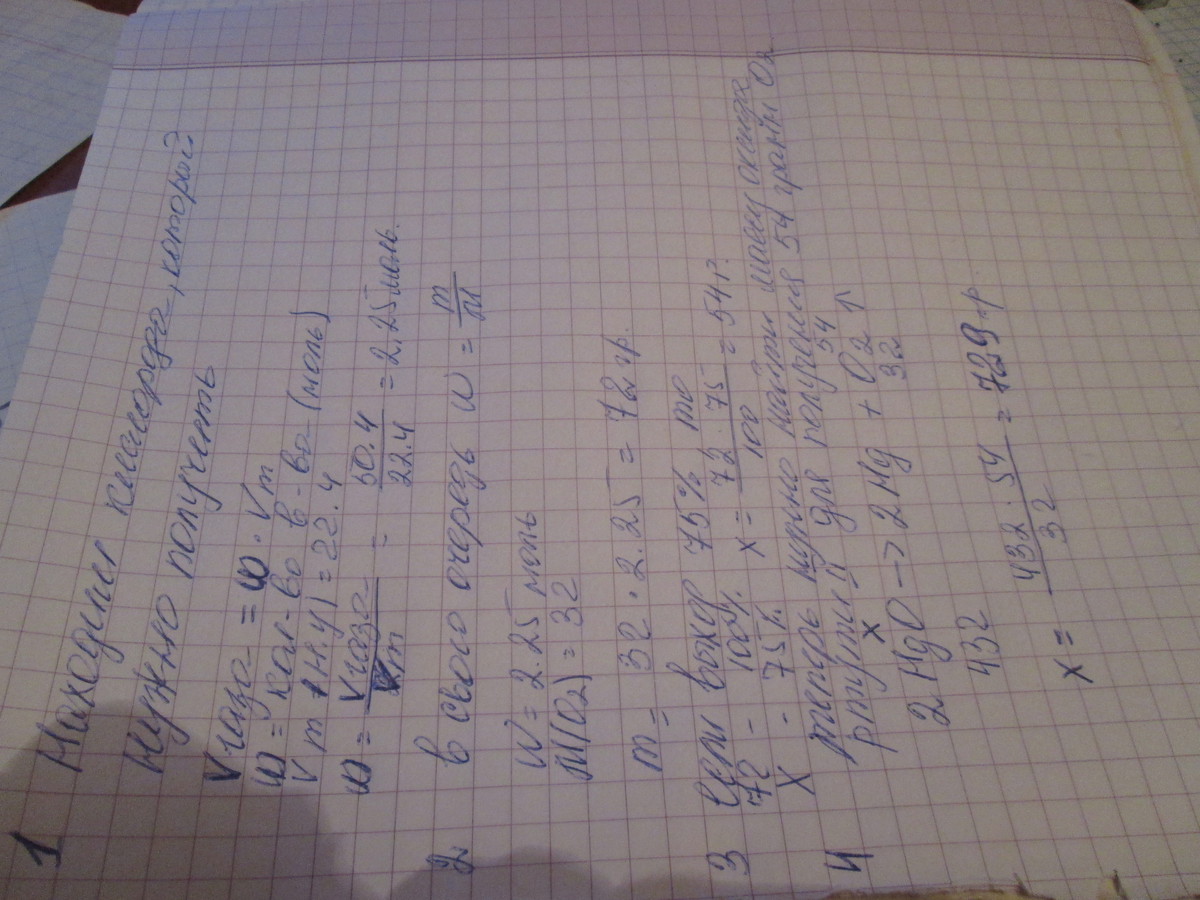 1 Находим кислорода, который
нужно получить
V газа = ω · Vm
ω = кол-во в-ва (моль)
Vm (н.у) = 22.4
ω = V газа / Vm = 50.4 / 22.4 = 2.25 моль.
2 в свою очередь W = m / M
W = 2.25 моль
M(O2) = 32
m = 32 · 2.25 = 72 гр.
3 если выход 75% то
72 - 100% x = 72 · 75 / 100 = 54 г.
X - 75%
4 теперь нужно найти массу оксида
ртути II для получения 54 грамм O2
x 54
2 HgO -> 2 Hg + O2 ↑
432 32
x = 432 · 54 / 32 = 729 гр